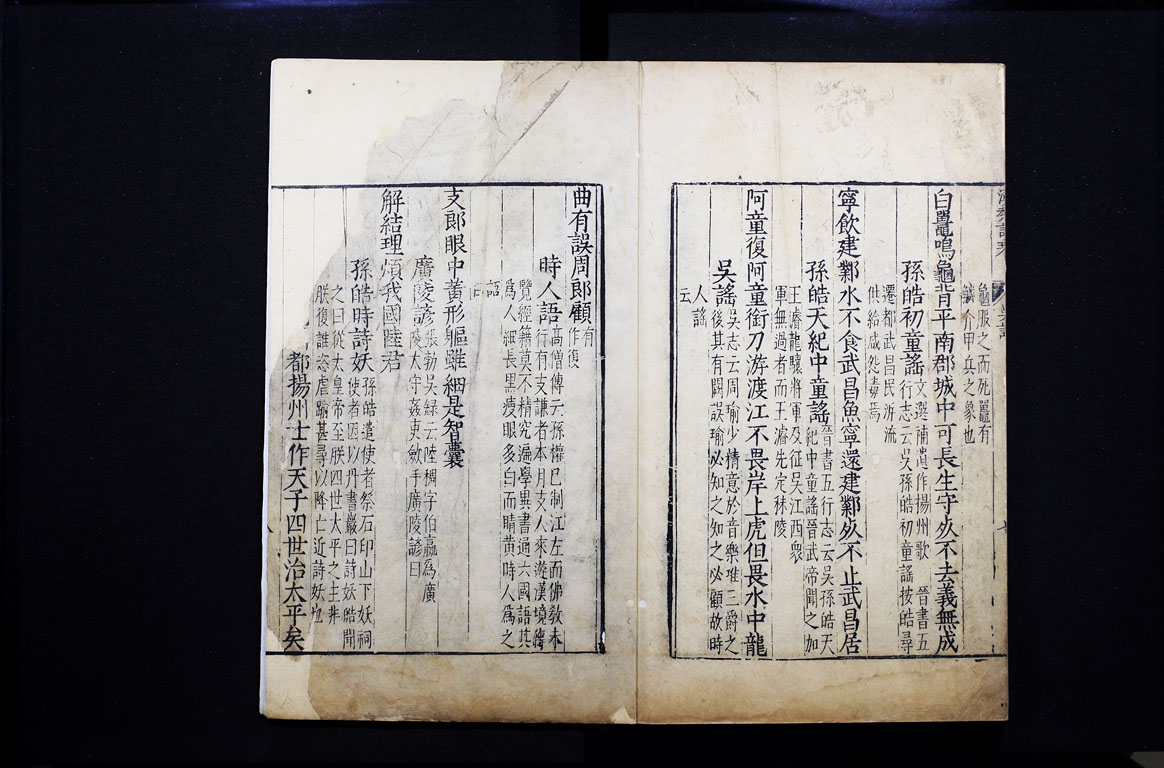 龜服之而死鼉有
鱗介甲兵之象也
白鼉鳴龜背平南郡城中可長生守死不去義無成
孫皓初童謠 文選補遺作揚州歌 晉書五
行志云吳孫皓初童謠按皓尋
遷都武昌民泝流
供給咸怨毒焉
寧飲建鄴水不食武昌魚寧還建鄴死不止武昌居
孫皓天紀中童謠 晉書五行志云吳孫皓天
紀中童謠晉武帝聞之加
王濬龍驤將軍及征吳江西衆
軍無過者而王濬先定秣陵
阿童復阿童銜刀游渡江不畏岸上虎但畏水中龍
吳謠 吳志云周瑜少精意於音樂雖三爵之
後其有闕誤瑜必知之知之必顧故時
人謠
云
曲有誤周郎顧 有
作復
時人語 高僧傳云孫權已制江左而佛教未
行有支謙者本月支人來遊漢境博
覽經籍莫不精究遍學異書通六國語其
爲人細長黑瘦眼多白而睛黃時人爲之
語
曰
支郎眼中黃形軀雖細是智囊
廣陵諺 張勃吳録云陸稠字伯嬴爲廣
陵太守姦吏斂手廣陵諺曰
解結理煩我國陸君
孫皓時詩妖 孫皓遣使者祭石印山下妖祠
使者因以丹書巖曰詩妖皓聞
之曰從太皇帝至朕四世太平之主非
朕復誰恣虐踰甚尋以降亡近詩妖也
都揚州士作天子四世治太平矣
八